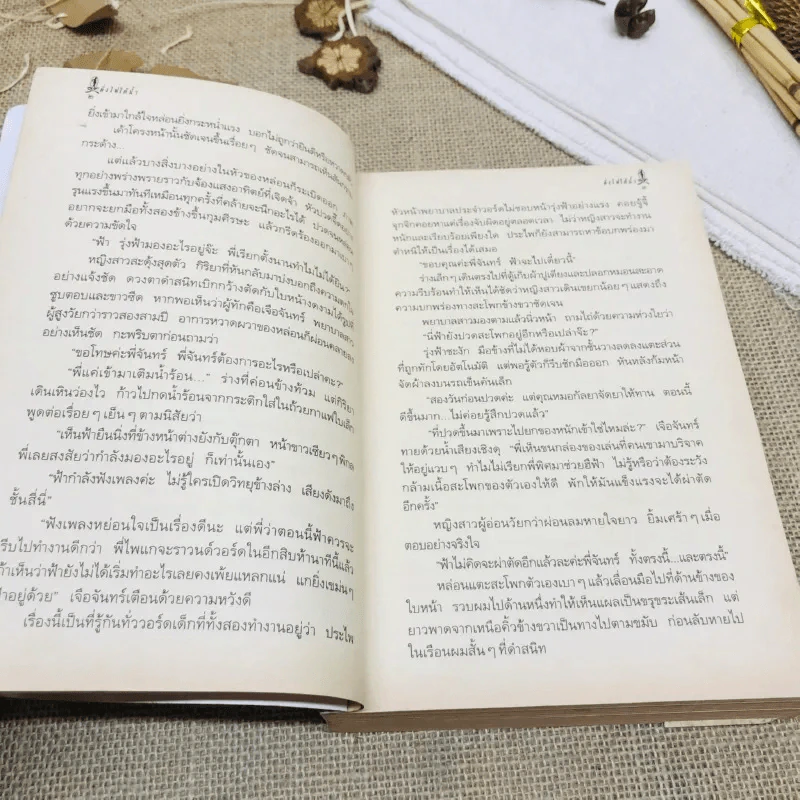 ยิ่งเข้ามาใกล้ใจหล่อนยิ่งกระหน่ำแรง บอกไม่ถูกว่ายินดีหรือ
เค้าโครงหน้านั้นชัดเจนขึ้นเรื่อยๆ ชัดจนสามารถเห็น
กระด้าง...
แต่แล้วบางสิ่งบางอย่างในหัวของหล่อนก็ระเบิดออก
ทุกอย่างพร่างพรายราวกับจ้องแสงอาทิตย์ที่เจิดจ้า หัวปวดจี๊ด
รุนแรงขึ้นมาทันทีเหมือนทุกครั้งที่คล้ายจะนึกอะไรได้ ปวดจน
อยากจะยกมือทั้งสองข้างขึ้นกุมศีรษะ แล้วกรีดร้องออกมา
ด้วยความขัดใจ
“ฟ้า รุ่งฟ้ามองอะไรอยู่จ๊ะ พี่เรียกตั้งนานทำไมไม่ได้ยิน?”
หญิงสาวสะดุ้งสุดตัว กิริยาที่หันกลับมาบ่งบอกถึงความตกใจ
อย่างแจ้งชัด ดวงตาดำสนิทเบิกกว้างตัดกับใบหน้างดงามได้รูปที่
ซูบตอบและขาวซีด หากพอเห็นว่าผู้ทักคือเจือจันทร์ พยาบาลสาว
ผู้สูงวัยกว่าราวสองสามปี อาการหวาดผวาของหล่อนก็ผ่อนคลายลง
อย่างเห็นชัด กะพริบตาก่อนถามว่า
“ขอโทษค่ะพี่จันทร์ พี่จันทร์ต้องการอะไรหรือเปล่าคะ?”
“พี่แค่เข้ามาเติมน้ำร้อน...” ร่างที่ค่อนข้างท้วม แต่กิริยา
เดินเหินว่องไว ก้าวไปกดน้ำร้อนจากกระติกใส่ในถ้วยกาแฟใบเล็ก
พูดต่อเรื่อยๆ เย็นๆ ตามนิสัยว่า
“เห็นฟ้ายืนนิ่งที่ข้างหน้าต่างยังกับตุ๊กตา หน้าขาวเซียวๆ พิกล
พี่เลยสงสัยว่ากำลังมองอะไรอยู่ ก็เท่านั้นเอง”
“ฟ้ากำลังฟังเพลงค่ะ ไม่รู้ใครเปิดวิทยุข้างล่าง เสียงดังมาถึง
ชั้นสี่นี่”
“ฟังเพลงหย่อนใจเป็นเรื่องดีนะ แต่พี่ว่าตอนนี้ฟ้าควรจะ
รีบไปทำงานดีกว่า พี่ไพแกจะราวนด์วอร์ดในอีกสิบห้านาทีนี้แล้ว
ถ้าเห็นว่าฟ้ายังไม่ได้เริ่มทำอะไรเลยคงเพ้ยแหลกแน่ แกยิ่งเขม่นๆ
อยู่ด้วย” เจือจันทร์เตือนด้วยความหวังดี
เรื่องนี้เป็นที่รู้กันทั่ววอร์ดเด็กที่ทั้งสองทำงานอยู่ว่า ประไพ
หัวหน้าพยาบาลประจำวอร์ดไม่ชอบหน้ารุ่งฟ้าอย่างแรง คอยจู้จี้
จุกจิกคอยหาแต่เรื่องจับผิดอยู่ตลอดเวลา ไม่ว่าหญิงสาวจะทำงาน
หนักและเรียบร้อยเพียงใด ประไพก็ยังสามารถหาข้อบกพร่องมา
ตำหนิให้เป็นเรื่องได้เสมอ
“ขอบคุณค่ะพี่จันทร์ ฟ้าจะไปเดี๋ยวนี้”
ร่างเล็กๆ เดินตรงไปที่ตู้เก็บผ้าปูเตียงและปลอกหมอนสะอาด
ความรีบร้อนทำให้เห็นได้ชัดว่าหญิงสาวเดินเขยกน้อยๆ แสดงถึง
ความบกพร่องทางสะโพกข้างขวาชัดเจน
พยาบาลสาวมองตามแล้วนิ่วหน้า ถามไถ่ด้วยความห่วงใยว่า
“นี่ฟ้ายังปวดสะโพกอยู่อีกหรือเปล่าจ๊ะ?”
รุ่งฟ้าชะงัก มือข้างที่ไม่ได้หอบผ้าจากชั้นวางลดลงแตะส่วน
ที่ถูกทักโดยอัตโนมัติ แต่พอรู้ตัวก็รีบชักมือออก หันหลังก้มหน้า
จัดผ้าลงบนรถเข็นคันเล็ก
“สองวันก่อนปวดค่ะ แต่คุณหมอกัลยาจัดยาให้ทาน ตอนนี้
ดีขึ้นมาก...ไม่ค่อยรู้สึกปวดแล้ว”
“ที่ปวดขึ้นมาเพราะไปยกของหนักเข้าใช่ไหมล่ะ?” เจือจันทร์
ทายด้วยน้ำเสียงเชิงดุ “พี่เห็นขนกล่องของเล่นที่คนเขามาบริจาค
ให้อยู่แวบๆ ทำไมไม่เรียกพี่พิศมาช่วยฮึฟ้า ไม่รู้หรือว่าต้องระวัง
กล้ามเนื้อสะโพกของตัวเองให้ดี พักให้มันแข็งแรงจะได้ผ่าตัด
อีกครั้ง”
หญิงสาวผู้อ่อนวัยกว่าผ่อนลมหายใจยาว ยิ้มเศร้าๆ เมื่อ
ตอบอย่างจริงใจ
“ฟ้าไม่คิดจะผ่าตัดอีกแล้วละค่ะพี่จันทร์ ทั้งตรงนี้...และตรงนี้”
หล่อนแตะสะโพกตัวเองเบาๆ แล้วเลื่อนมือไปที่ด้านข้างของ
ใบหน้า รวบผมไปด้านหนึ่งทำให้เห็นแผลเป็นขรุขระเส้นเล็ก แต่
ยาวพาดจากเหนือคิ้วข้างขวาเป็นทางไปตามขมับ ก่อนลับหายไป
ในเรือนผมสั้นๆ ที่ดำสนิท